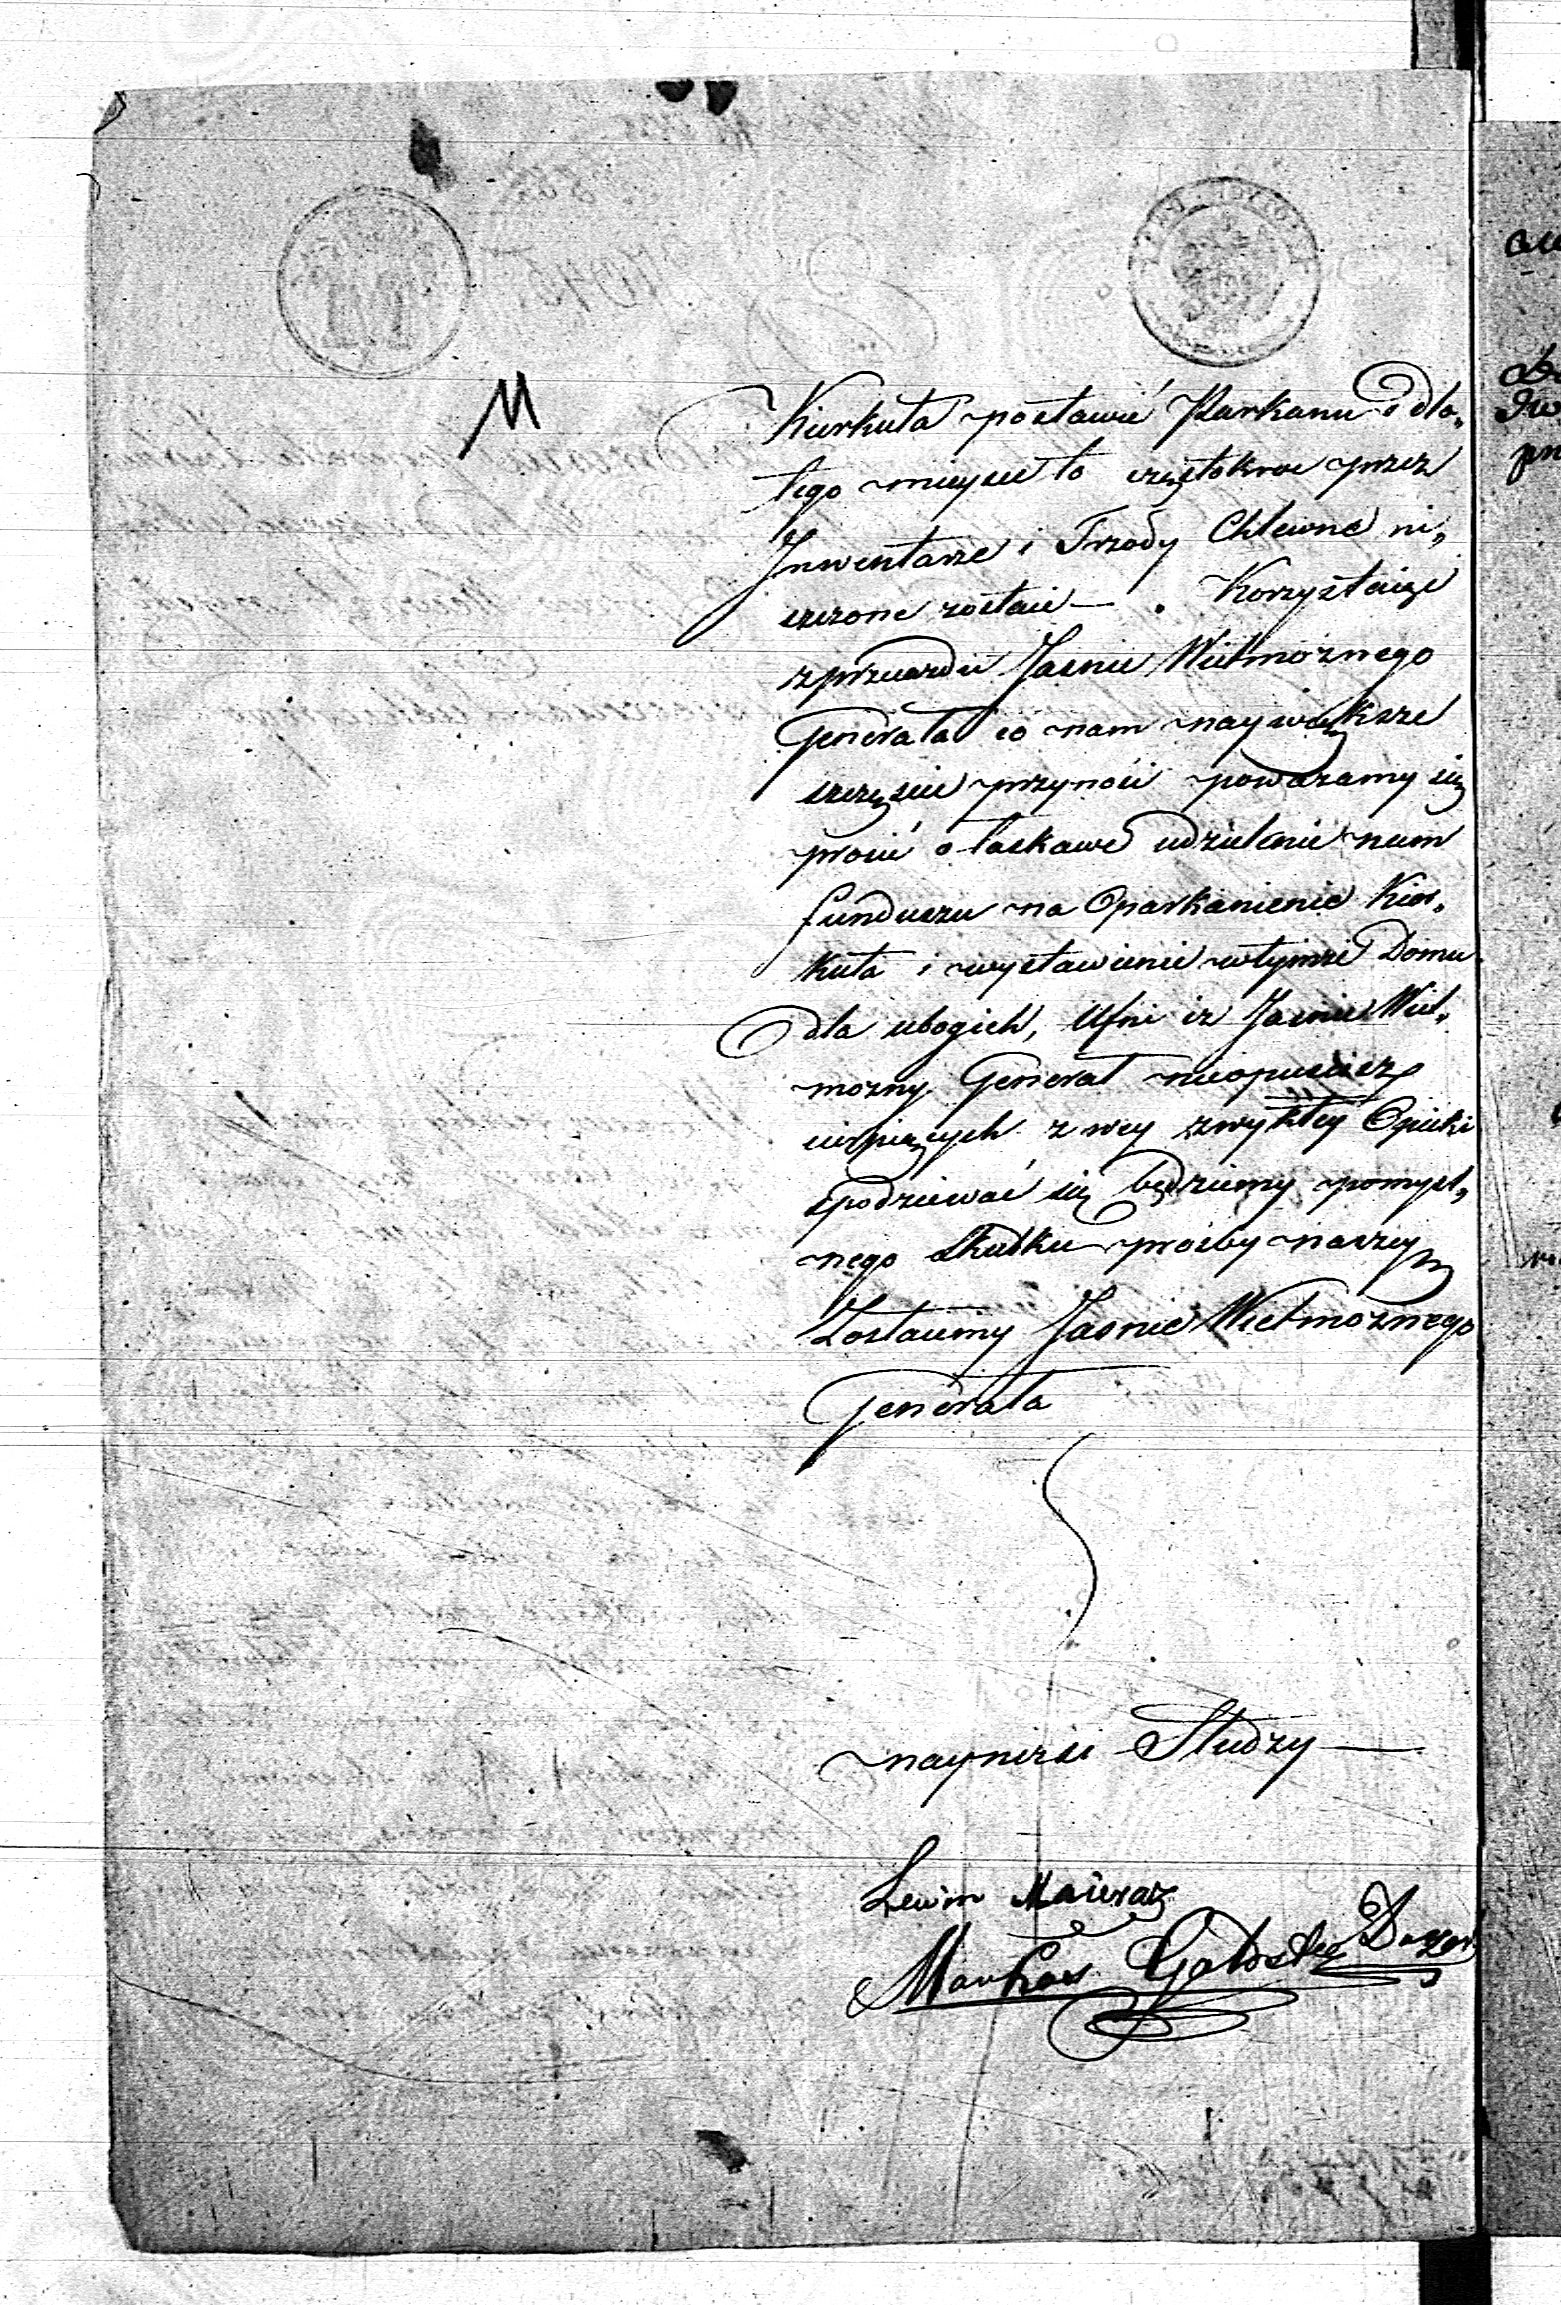 M
Kierkuta postawić Parkanu i dla„
tego mieysce to częstokroc przez
Inwentarze i Trzody Chlewne ni„
szczone zostaie — . Korzystaiąc
z przeiazdu Jasnie Wielmoznego
Generała co nam naywiększe
szczęscie przynosi powazamy się
prosić o łaskawe udzielenie nam
funduszu na Oparkanienie Kier„
kuta i wystawienie w tymze Domu
dla ubogich, Ufni iz Jasnie Wiel„
mozny Generał nieopuscisz
cierpiących z swey zwykłey Opieki
spodziewać się będziemy pomysl„
nego skutku prosby naszey
Zostaiemy Jasnie Wielmoznego
Generała
naynizsi Słudzy —
Lewin
Markus